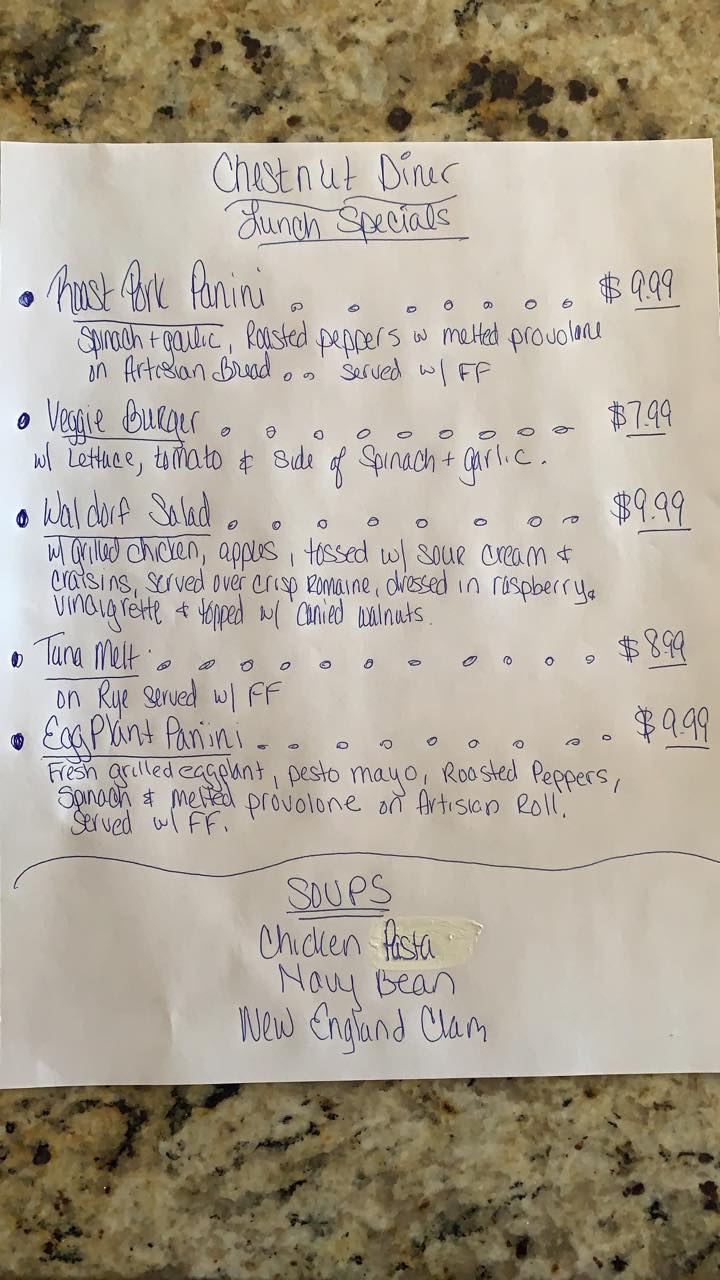 Chestnut Diner
Lunch Specials
• Roast Pork Panini . . . . . . . $ 9.99
Spinach + garlic, Roasted peppers w melted provolone
on Artesian Bread . . served w/ FF
• Veggie Burger . . . . . . . . $7.99
w/ Lettuce, tomato & side of Spinach + garlic.
• Waldorf Salad . . . . . . . . $9.99
w/ grilled chicken, apples, tossed w/ sour cream &
craisins, served over crisp Romaine, dressed in raspberry
vinaigrette & topped w/ canied walnuts.
• Tuna Melt . . . . . . . . . . . $ 8.99
on Rye served w/ FF
• EggPlant Panini . . . . . . . . . $ 9.99
Fresh grilled eggplant, pesto mayo, Roasted Peppers,
Spinach & melted provolone on Artisian Roll.
Served w/ FF.
SOUPS
Chicken Pasta
Navy Bean
New England Clam